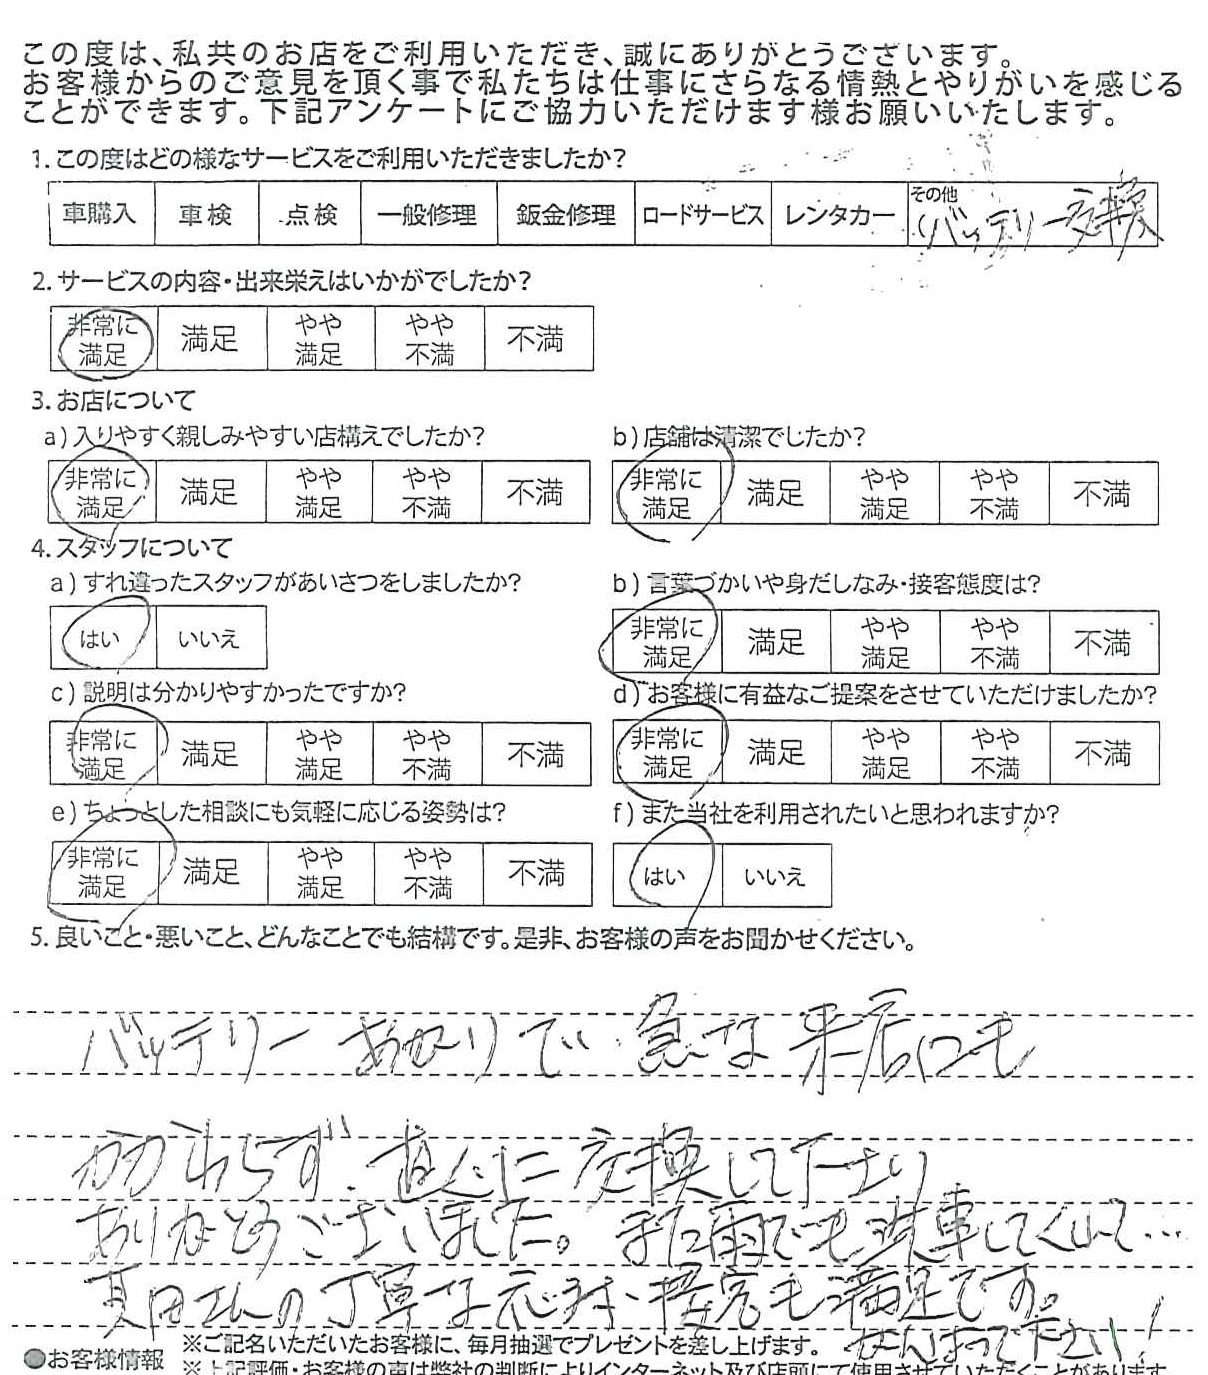 この度は、私共のお店をご利用いただき、誠にありがとうございます。
お客様からのご意見を頂く事で私たちは仕事にさらなる情熱とやりがいを感じる
ことができます。下記アンケートにご協力いただけます様お願いいたします。
1.この度はどの様なサービスをご利用いただきましたか?
車購入 車検 点検 一般修理 鈑金修理 ロードサービス レンタカー その他 バッテリー交換
2.サービスの内容・出来栄えはいかがでしたか?
非常に満足 満足 やや満足 やや不満 不満
3.お店について
a)入りやすく親しみやすい店構えでしたか?
非常に満足 満足 やや満足 やや不満 不満
b)店舗は清潔でしたか?
非常に満足 満足 やや満足 やや不満 不満
4.スタッフについて
a)すれ違ったスタッフがあいさつをしましたか?
はい いいえ
b)言葉づかいや身だしなみ・接客態度は?
非常に満足 満足 やや満足 やや不満 不満
c)説明は分かりやすかったですか?
非常に満足 満足 やや満足 やや不満 不満
d)お客様に有益なご提案をさせていただけましたか?
非常に満足 満足 やや満足 やや不満 不満
e)ちょっとした相談にも気軽に応じる姿勢は?
非常に満足 満足 やや満足 やや不満 不満
f)また当社を利用されたいと思われますか?
はい いいえ
5.良いこと・悪いこと、どんなことでも結構です。是非、お客様の声をお聞かせください。
バッテリーあがりで急な来店にも
かかわらず、直ぐに交換して下さり
ありがとうございました。また雨でも洗車してくれて…
真田さんの丁寧な応対・接客も満足です。
がんばって下さい!
●お客様情報
※ご記名いただいたお客様に、毎月抽選でプレゼントを差し上げます。
※上記評価・お客様の声は弊社の判断によりインターネット及び店頭にて使用させていただくことがあります